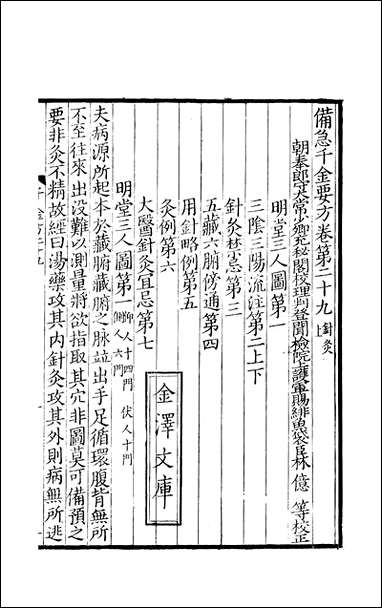 備急千金要方卷第二十九 針灸上
朝奉郎守太常少卿充秘閣校理判登聞檢院護軍賜緋魚袋臣林億等校正
明堂三人圖第一
三陰三陽流注第二上下
針灸禁忌第三
五藏六腑傍通第四
用針略例第五
灸例第六
大醫針灸宜忌第七
金澤文庫
明堂三人圖第一 仰人十四門 伏人十門 側人六門
夫病源所起本於藏腑藏腑之脉竝出手足循環腹背無所
不至往來出沒難以測量將欲指取其穴非圖莫可備預之
要非灸不精故經曰湯藥攻其內針灸攻其外則病無所逃